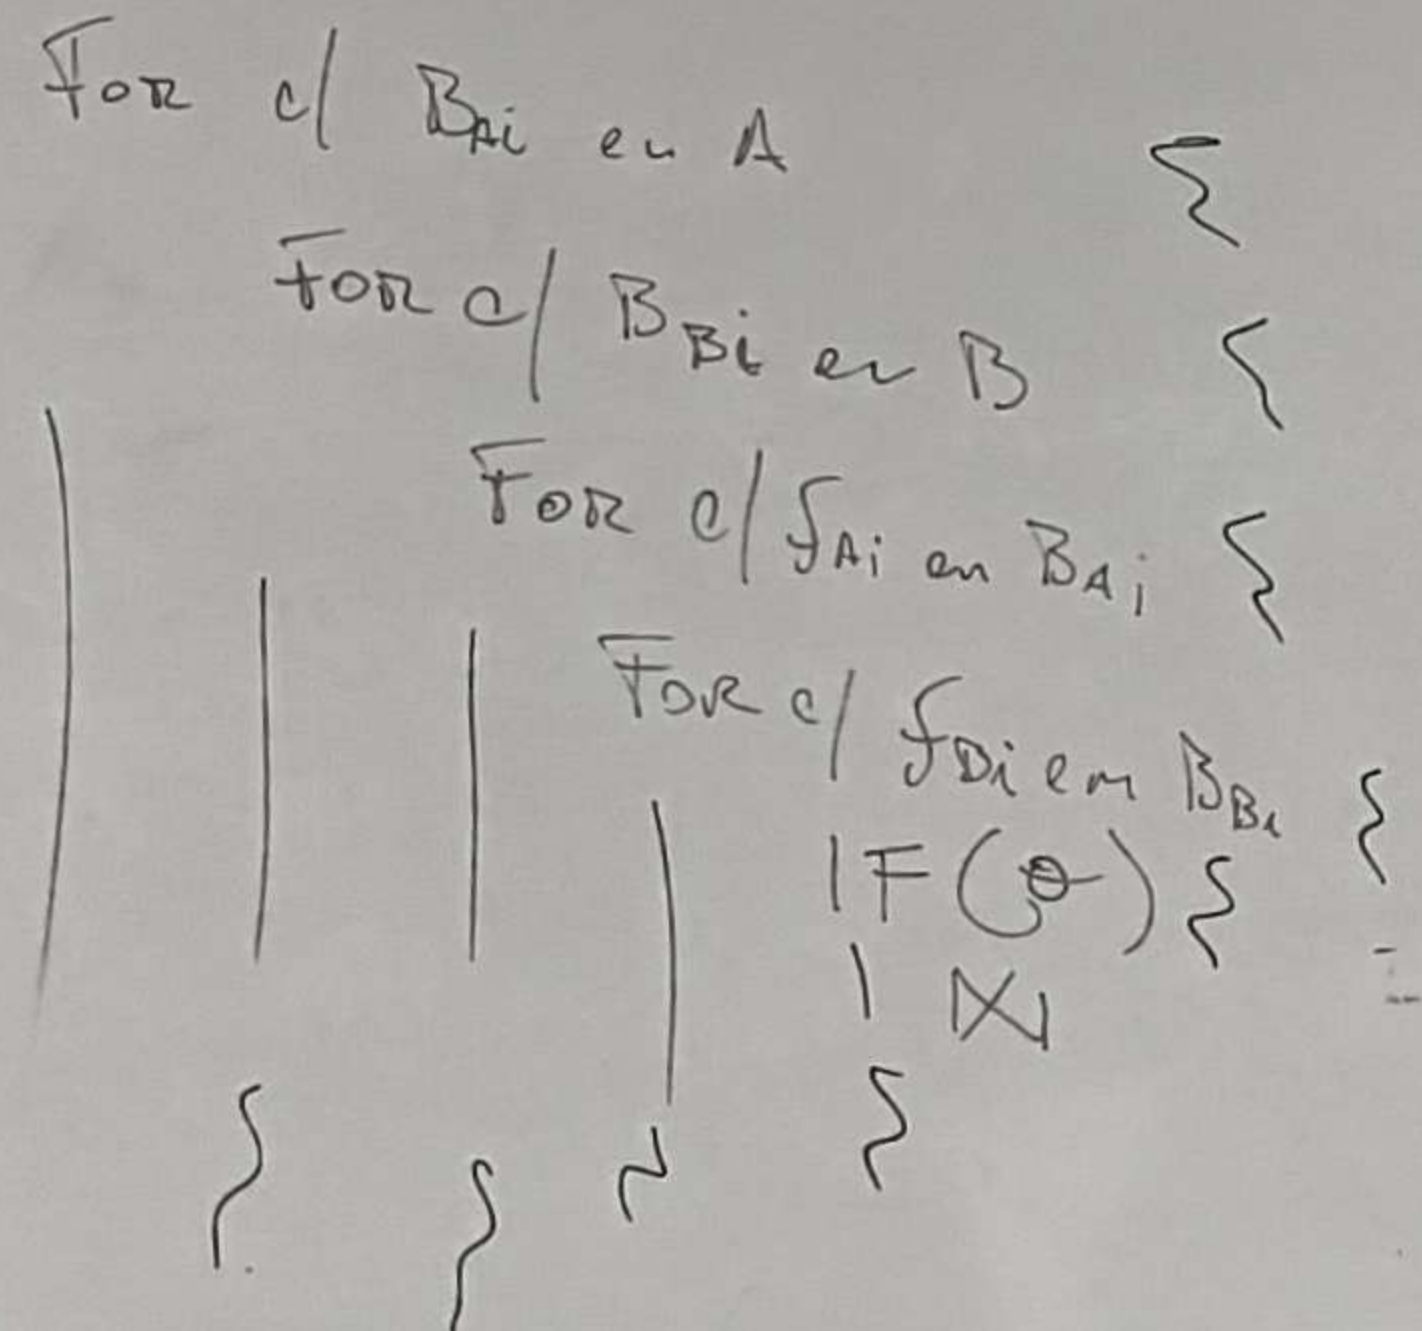 FOR c/ B_Ai en A {
FOR c/ B_Bi en B {
FOR c/ f_Ai en B_Ai {
FOR c/ f_Bi en B_Bi {
IF (θ) {
⋈
}
}
}
}